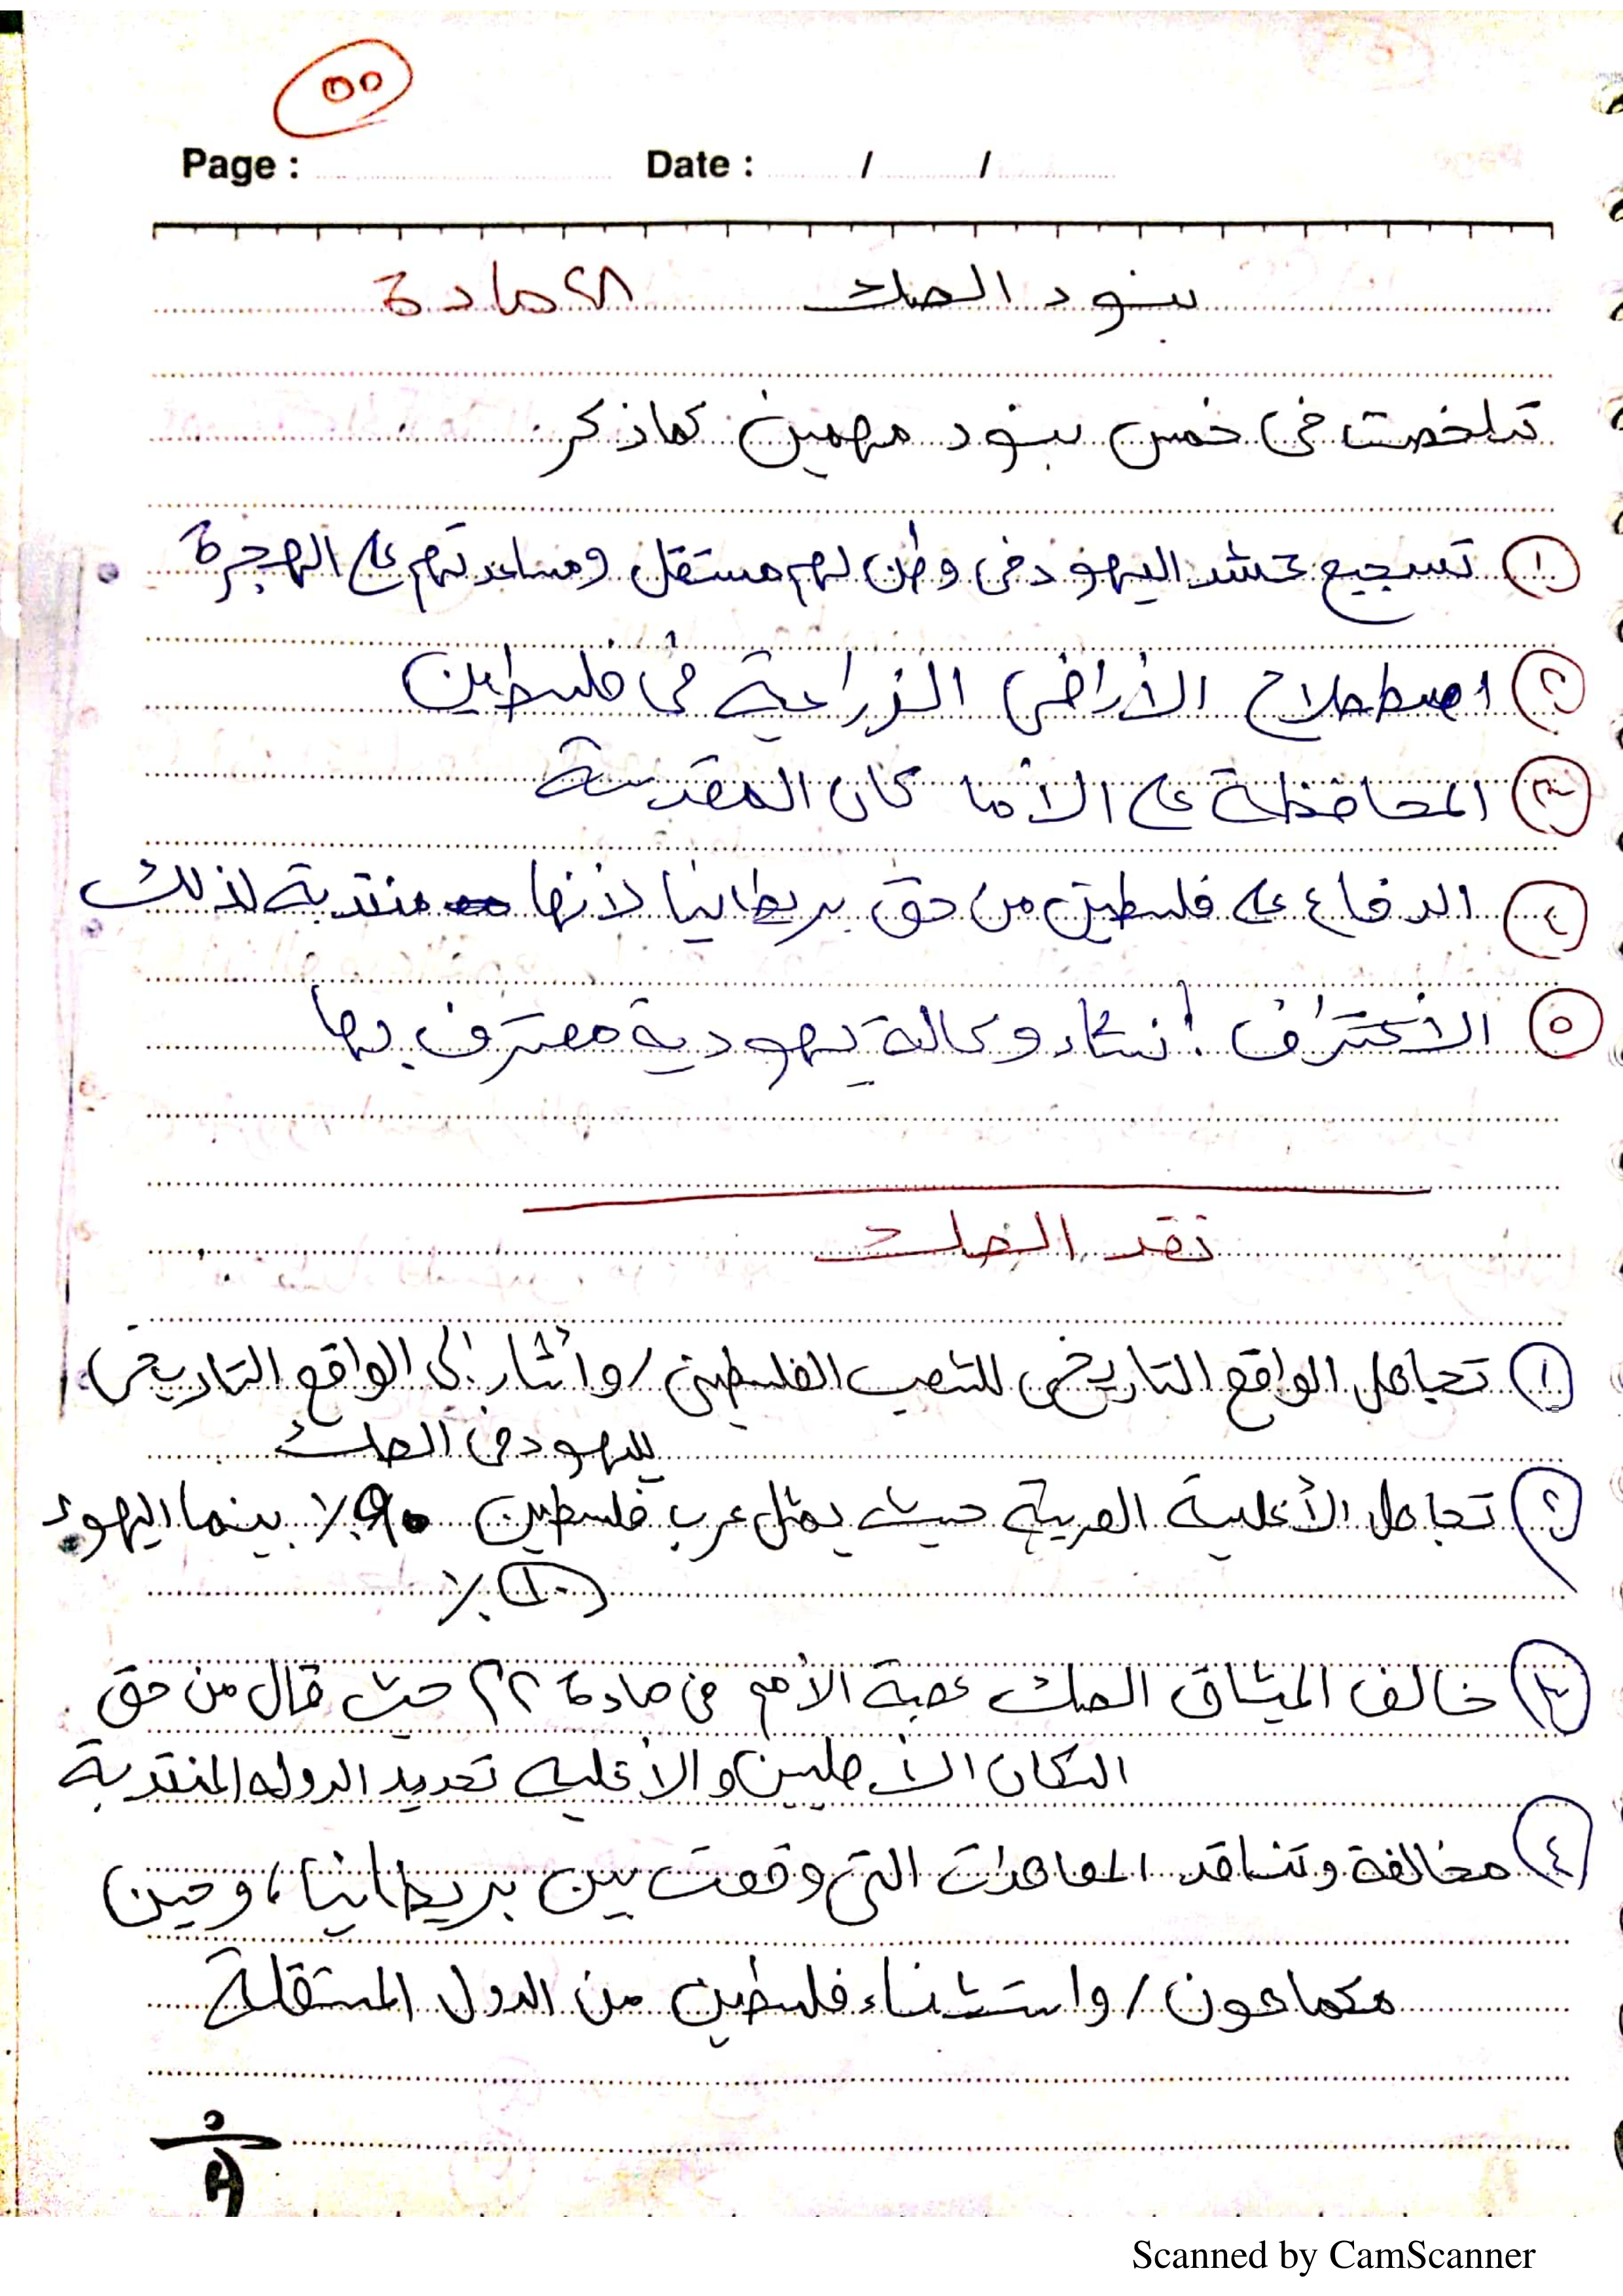 ٥٥
Page : Date : / /
بنود الصك ٢٨ مادة
تلخصت في خمس بنود مهمين كما ذكر
١ تسجيع حشد اليهود في وطن لهم مستقل ومساعدتهم على الهجرة
٢ اصطصلاح الأراضي الزراعية في فلسطين
٣ المحافظة على الأماكان المقدسة
٤ الدفاع على فلسطين من حق بريطانيا لأنها منتدبة لذلك
٥ الأعتراف إنشاء وكالة يهودية معترف بها
نقد الصك
١ تجاهل الواقع التاريخي للشعب الفلسطيني / وأشار إلى الواقع التاريخي
لليهود في الصك
٢ تجاهل الأغلبية العربية حيث يمثل عرب فلسطين ٩٠٪ بينما اليهود
١٠٪
٣ خالف الميثاق الصك عصبة الأمم في مادة ٢٢ حيث قال من حق
السكان الأصليين والأغلبيه تحديد الدوله المنتدبة
٤ مخالفة وتناقد المعاهدات التي وقعت بين بريطانيا، وحين
مكماهون / واستثناء فلسطين من الدول المستقلة
Scanned by CamScanner